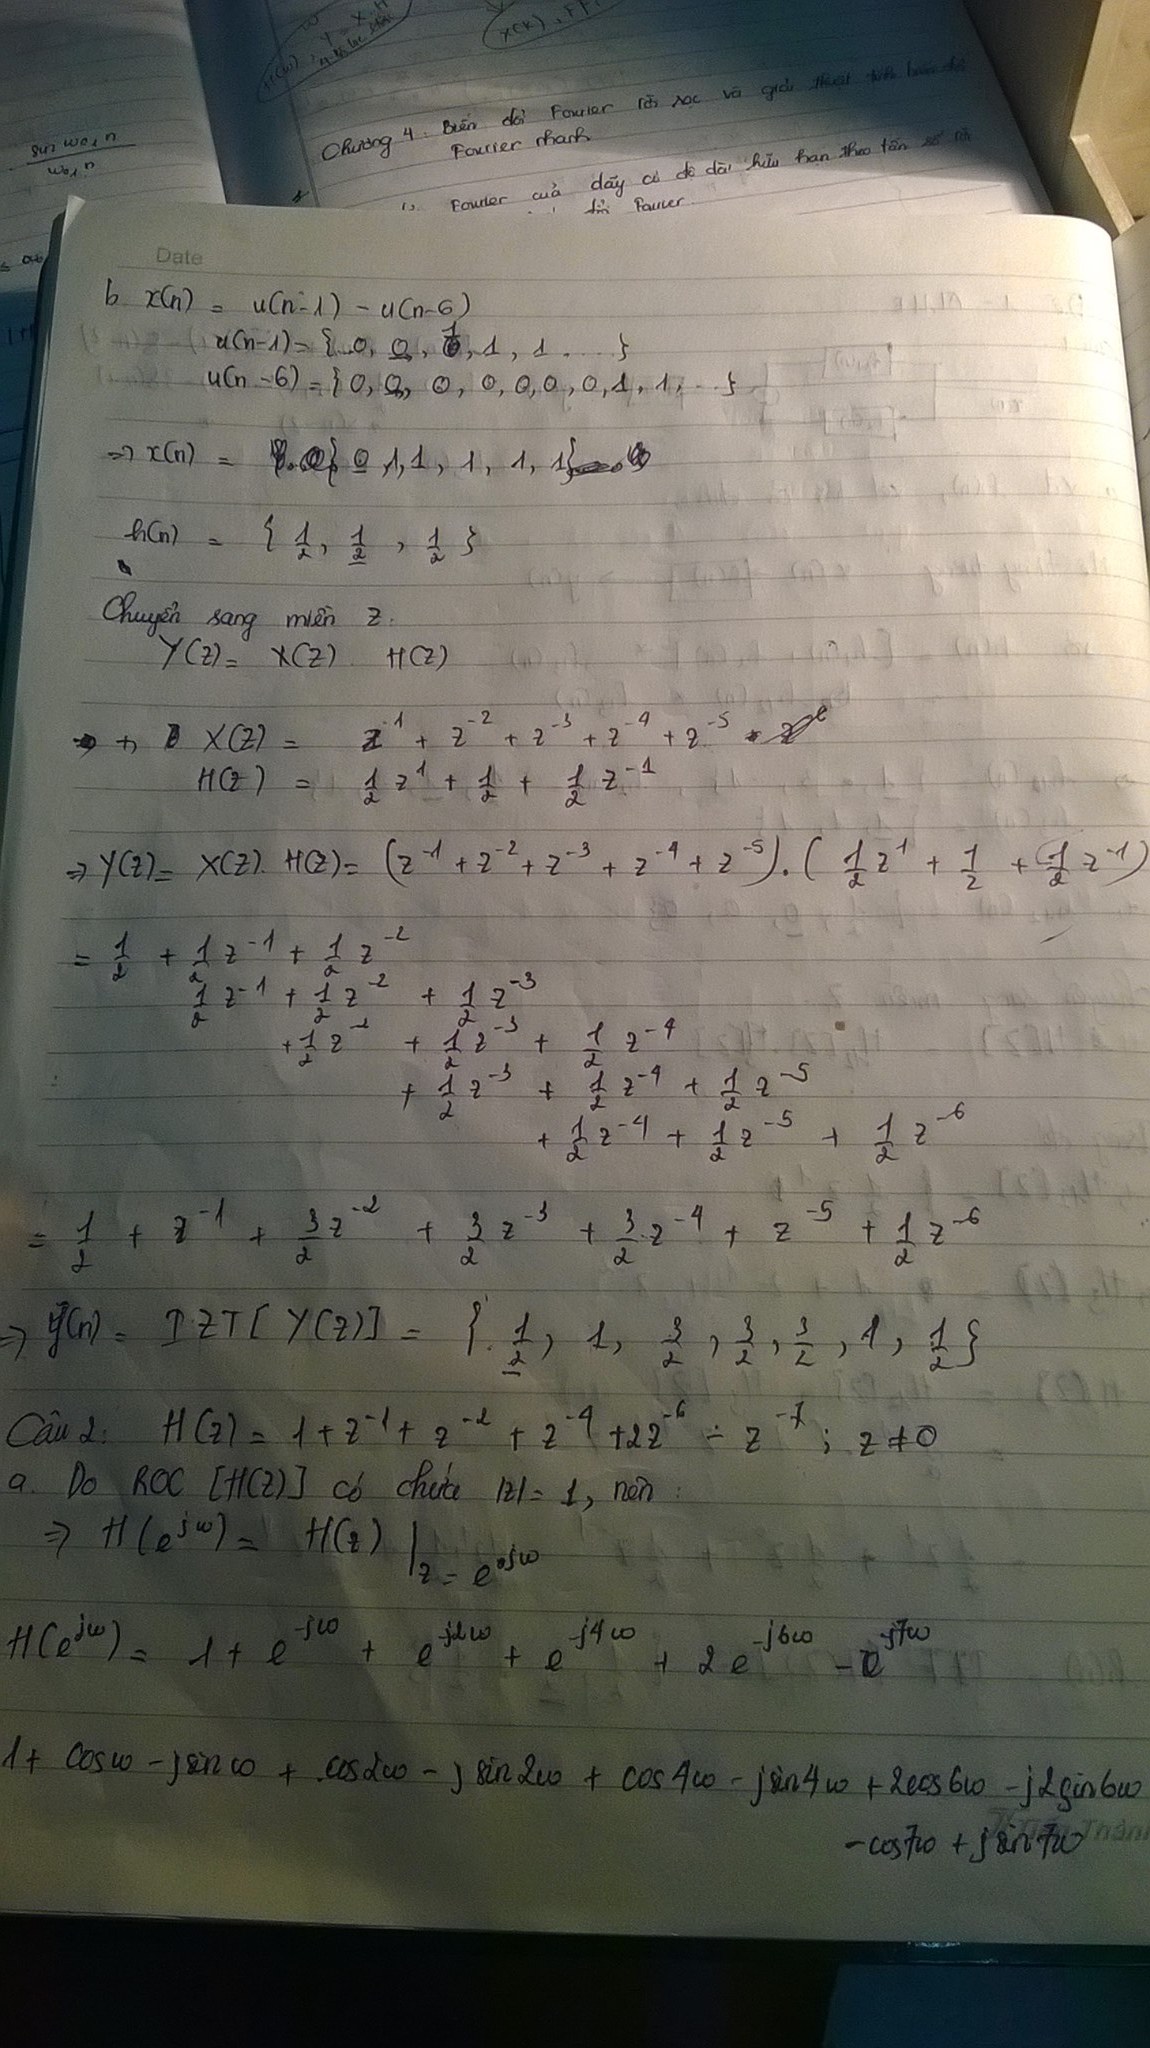 Chương 4: Biến đổi Fourier rời rạc và giải thuật tính biến đổi
Fourier nhanh
Fourier của dãy có độ dài hữu hạn theo tần số rời
đổi Fourier
sin ω₀₁n
ω₀₁n
Date
b x(n) = u(n-1) - u(n-6)
u(n-1) = {..0, 0, 1, 1, 1 ....}
u(n-6) = {0, 0, 0, 0, 0, 0, 0, 1, 1, ...}
=> x(n) = { 0, 1, 1, 1, 1, 1}
h(n) = { 1/2, 1/2, 1/2 }
Chuyển sang miền z.
Y(z) = X(z). H(z)
+, X(z) = z^-1 + z^-2 + z^-3 + z^-4 + z^-5
H(z) = 1/2 z^1 + 1/2 + 1/2 z^-1
=> Y(z) = X(z). H(z) = (z^-1 + z^-2 + z^-3 + z^-4 + z^-5).( 1/2 z^1 + 1/2 + 1/2 z^-1)
= 1/2 + 1/2 z^-1 + 1/2 z^-2
1/2 z^-1 + 1/2 z^-2 + 1/2 z^-3
+ 1/2 z^-2 + 1/2 z^-3 + 1/2 z^-4
+ 1/2 z^-3 + 1/2 z^-4 + 1/2 z^-5
+ 1/2 z^-4 + 1/2 z^-5 + 1/2 z^-6
= 1/2 + z^-1 + 3/2 z^-2 + 3/2 z^-3 + 3/2 z^-4 + z^-5 + 1/2 z^-6
=> y(n) = IZT[ Y(z)] = { 1/2, 1, 3/2, 3/2, 3/2, 1, 1/2}
Câu 2: H(z) = 1 + z^-1 + z^-2 + z^-4 + 2z^-6 - z^-7; z ≠ 0
a. Do ROC [H(z)] có chứa |z| = 1, nên:
=> H(e^jω) = H(z) |z = e^jω
H(e^jω) = 1 + e^-jω + e^-j2ω + e^-j4ω + 2e^-j6ω - e^-j7ω
1 + cosω - jsinω + cos2ω - jsin2ω + cos4ω - jsin4ω + 2cos6ω - j2sin6ω
- cos7ω + jsin7ω